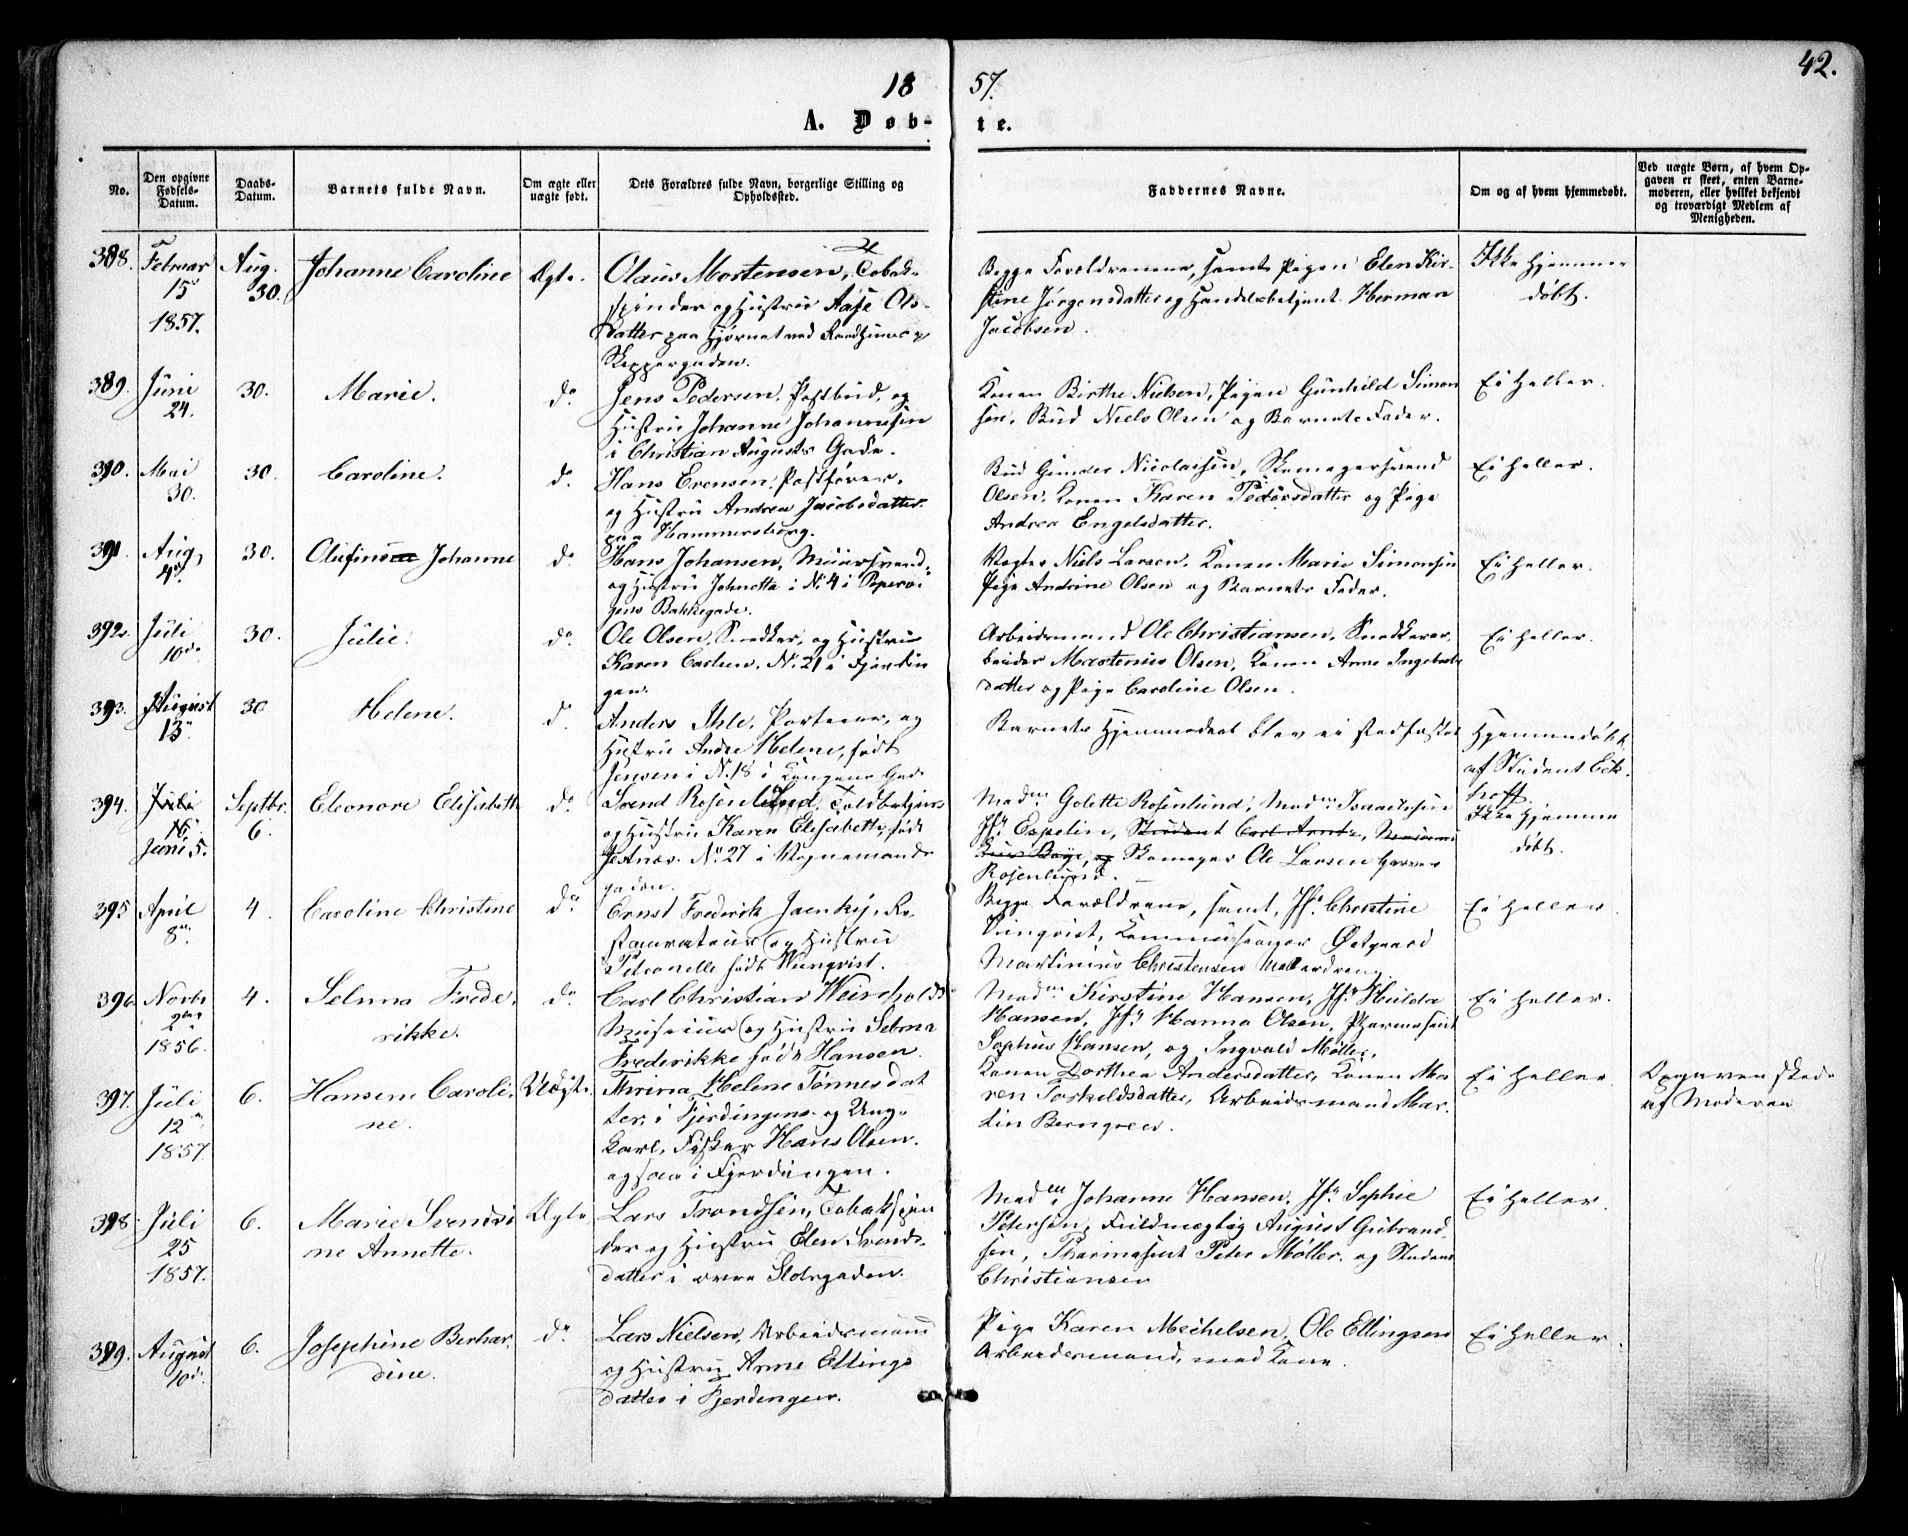 42.
18 57.
A. Døb- te.
No.
Den opgivne Fødsels-Datum.
Daabs-Datum.
Barnets fulde Navn.
Om ægte eller uægte født.
Dets Forældres fulde Navn, borgerlige Stilling og Opholdssted.
Faddernes Navne.
Om og af hvem hjemmedøbt.
Ved uægte Børn, af hvem Opgaven er skeet, enten Barnemoderen, eller hvilket bekjendt og troværdigt Medlem af Menigheden.
388. Februar 15de 1857.
Aug. 30.
Johanne Caroline
Ægte.
Olaus Mortensen, Tobak-
spinder og Hustru Aase Ols-
datter paa Hjørnet ved
Skippergaden.
Begge Forældrene, samt Pigen Elen Kir-
stine Jørgensdatter og Handelsbetjent Herman
Jacobsen.
Ikke hjemme
døbt.
389. Juni 24.
30.
Marie.
do.
Jens Pedersen, Postbud, og
Hustru Johanne Johannesen
i Christian Augusts Gade.
Konen Birthe Nielsen, Pigen Gunhild Simon
sen, Bud Niels Olsen og Barnets Fader.
Ei heller.
390. Mai 30.
30.
Caroline.
do.
Hans Evensen, Postfører,
og Hustru Andrea Jacobsdatter
paa Hammersborg.
Bud Gunder Nicolaisen, Skomagersvend
Olsen, Konen Karen Pedersdatter og Pige
Andrea Engelsdatter.
Ei heller.
391. Aug. 4de.
30.
Olufine Johanne
do.
Hans Johansen, Muursvend,
og Hustru Johnette i No. 4 i Pepervi-
gens Bakkegade.
Vægter Niels Larsen, Konen Marie Simonsen
Pige Andrine Olsen og Barnets Fader.
Ei heller.
392. Juli 10de.
30.
Julie.
do.
Ole Olsen, Snedker, og Hustru
Karen Carlsen, No. 21 i Fjerdin
gen.
Arbeidsmand Ole Christiansen, Snedkerar-
beider Martenius Olsen, Konen Anne Ingebrets
datter og Pige Caroline Olsen.
Ei heller.
393. August 13.
30
Helene.
do.
Anders Ihle, Porteur, og
Hustru Andre Helene, født
Jensen i No. 18 i Kongens Gade
Barnets Hjemmedaab blev ei stadfæstet
Hjemmedøbt
af Student Eck-
hoff.
394. Juli 16 Juni 5.
Septbr. 6.
Eleonore Elisabeth
do.
Svend Rosenlund, Toldbetjent
og Hustru Karen Elisabeth, født
No. 27 i Vognmands
gaden.
Madm Golette Rosenlund, Madm Isaachsen
Jfr. Espelin, Student Carl Arntz,
Boye, og Skomager Ole Larsen
Rosenlund.
Ikke hjemme
døbt.
395 April 8de.
4.
Caroline Christine
do.
Ernst Frederik Jaensky, Re-
staurateur og Hustru
Petronelle født Winqvist.
Begge Forældrene, samt, Jfr. Christine
Vinqvist, Østgaard
Martinius Christensen
Ei heller.
396. Novbr 2den 1856.
4.
Selma Frede-
rikke.
do.
Carl Christian Weinholdt
Museieur og Hustru Selma
Frederikke født Hansen.
Madm Kirstine Hansen, Jfr. Hulda
Hansen, Jfr. Hanna Olsen, Pharmaseut
Sophus Hansen, og Ingvald Møller.
Ei heller.
397. Juli 12te 1857.
6.
Hansene Caroli-
ne.
Uægte.
Mrina Helene Tønnesdat
ter, i Fjerdingen og Ung-
karl, Fisker Hans Olsen.
ogsaa i Fjerdingen.
Konen Dorthea Andersdatter, Konen Ma-
ren Torkeldsdatter, Arbeidsmand Mar-
tin Berngreen.
Ei heller.
Opgaven skede
af Moderen
398. Juli 25 1857.
6.
Marie Svendsi
ne Annette.
Ægte
Lars Trondsen, Tobakspin
der og Hustru Elen Svends-
datter i øvre Slotsgaden.
Madm Johanne Hansen, Jfr Sophie
Petersen, Fuldmægtig August Gubrand
sen, Pharmaseut Peter Møller og Student
Christiansen
Ei heller.
399. August 10de.
6.
Josephine Bernhar-
dine.
do.
Lars Nielsen, Arbeidsmand
og Hustru Anne Ellings
datter i Fjerdingen.
Pige Karen Mechelsen, Ole Ellingsen
Arbeidsmand, med Kone.
Ei heller.